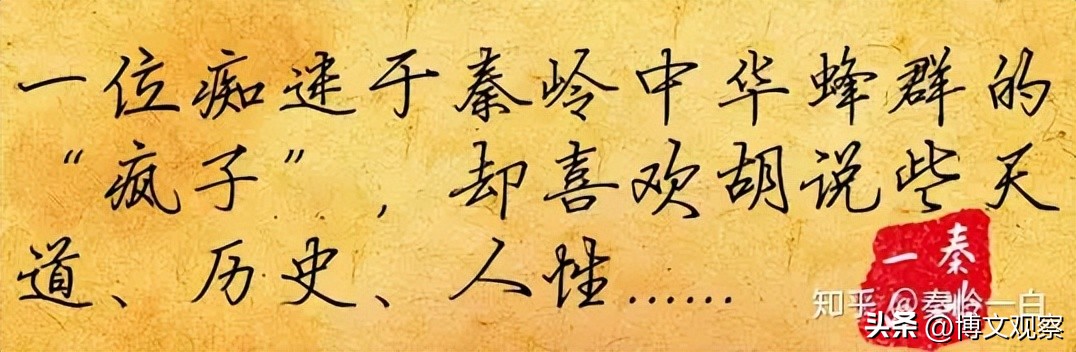 一位痴迷于秦岭中华蜂群的
“疯子”，却喜欢胡说些天
道、历史、人性……
秦
一
知乎 @秦岭一白
头条 @博文观察